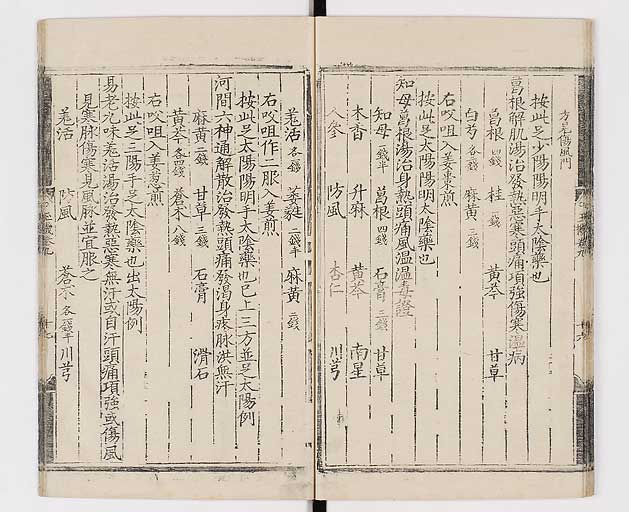 方是傷風門
按此足少陽陽明手太陰藥也
葛根解肌湯治發熱惡寒頭痛項強傷寒溫病
葛根四錢 桂一錢 黃芩 甘草
白芍各二錢 麻黃三錢
右㕮咀入姜棗煎
按此足太陽陽明太陰藥也
知母葛根湯治身熱頭痛風溫溫毒證
知母一錢半 葛根四錢 石膏三錢 甘草
木香 升麻 黃芩 南星
人參 防風 杏仁 川芎
羗活各一錢 葳蕤二錢半 麻黃二錢
右㕮咀作二服入姜煎
按此足太陽陽明手太陰藥也已上三方並足太陽例
河間六神通解散治發熱頭痛發渴身疼脉洪無汗
麻黃二錢 甘草三錢 石膏 滑石
黃芩各四錢 蒼朮八錢
右㕮咀入姜葱煎
按此足三陽手足太陰藥也出太陽例
易老九味羗活湯治發熱惡寒無汗或自汗頭痛項強或傷風
見寒脉傷寒見風脉並宜服之
羗活 防風 蒼朮各一錢半 川芎